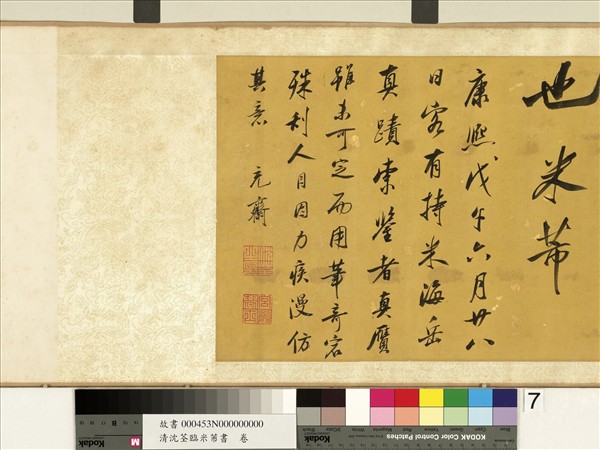 也米芾
康熙戊午六月廿八
日客有持米海岳
真蹟索鑒者真贗
雖未可定而用筆奇宕
殊利人目因力疾漫仿
其意 充齋
7
故書 000453N000000000
清沈荃臨米芾書 卷
Kodak
KODAK Color Control Patches
Blue
Cyan
Green
Yellow
Red
Magenta
White
Black